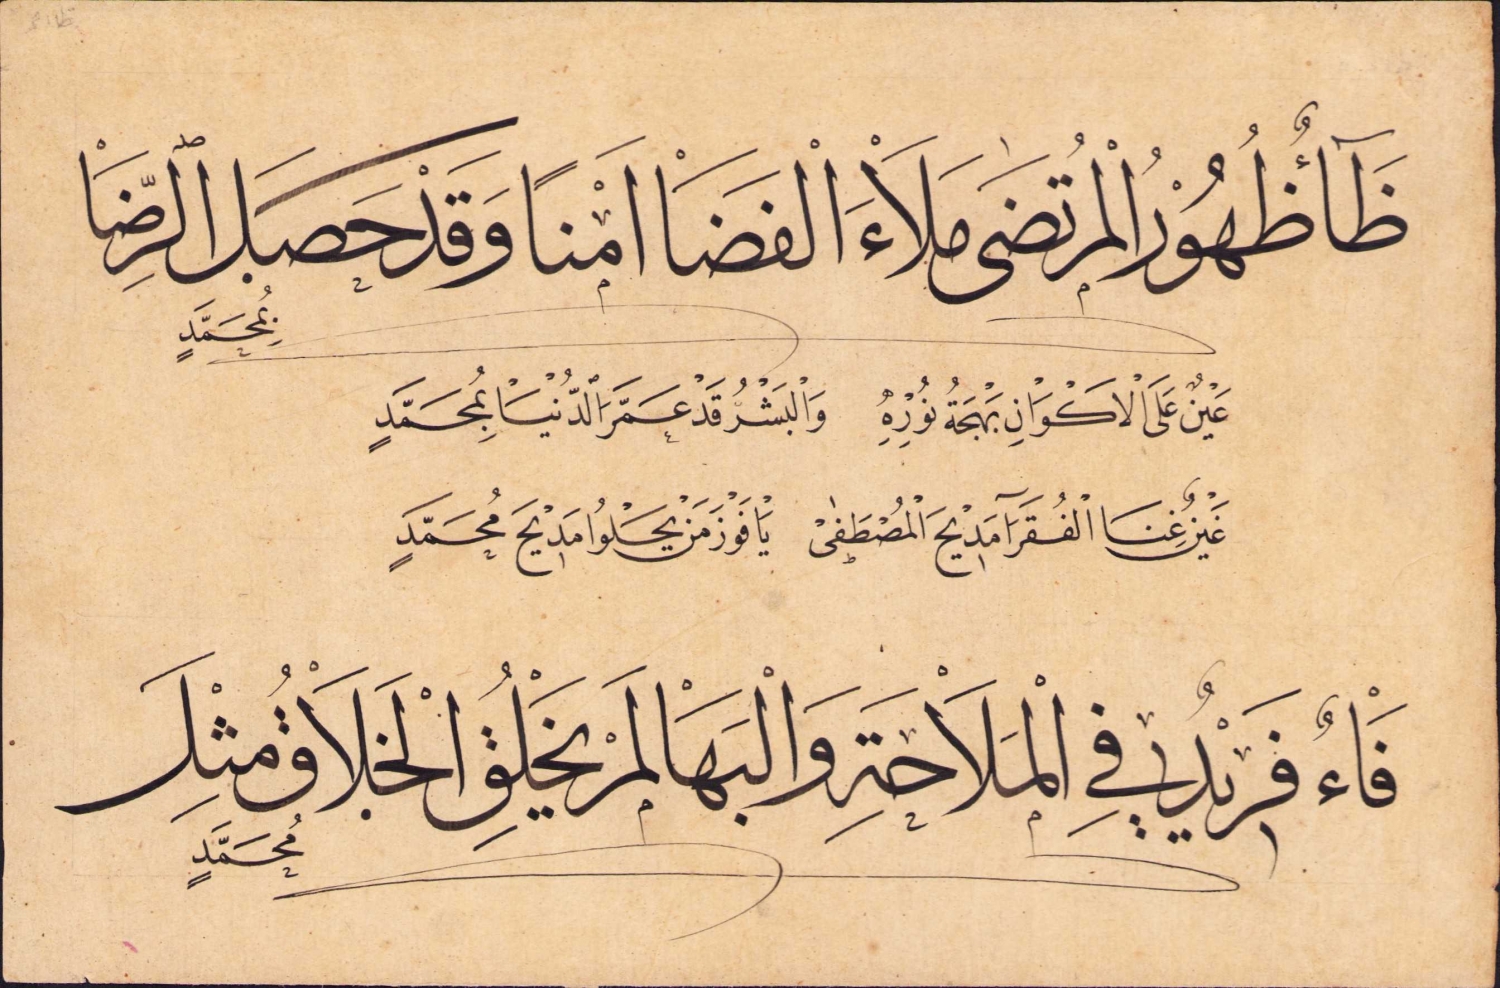 ظَآءٌ ظُهُوْرُ الْمُرْتَضَى مَلَاْءَ الْفَضَاْ اَمْناً وَقَدْ حَصَلَ الرِّضَاْ
بِمُحَمَّدٍ
عَيْنٌ عَلَى الْاَكْوَاْنِ بَهْجَةُ نُوْرِهِ وَالْبَشْرُ قَدْ عَمَّرَ الدُّنْيَاْ بِمُحَمَّدٍ
غَيْنٌ غِنَا الْفُقَرَآ مَدِيْحَ الْمُصْطَفٰىْ يَاْ فَوْزَ مَنْ يَجْلُوا مَدِيْحَ مُحَمَّدٍ
فَاْءٌ فَرِيْدٌ فِي الْمَلَاْحَةِ وَالْبَهَاْ لَمْ يَخْلُقِ الْخَلَاْقُ مِثْلَ
مُحَمَّدٍ